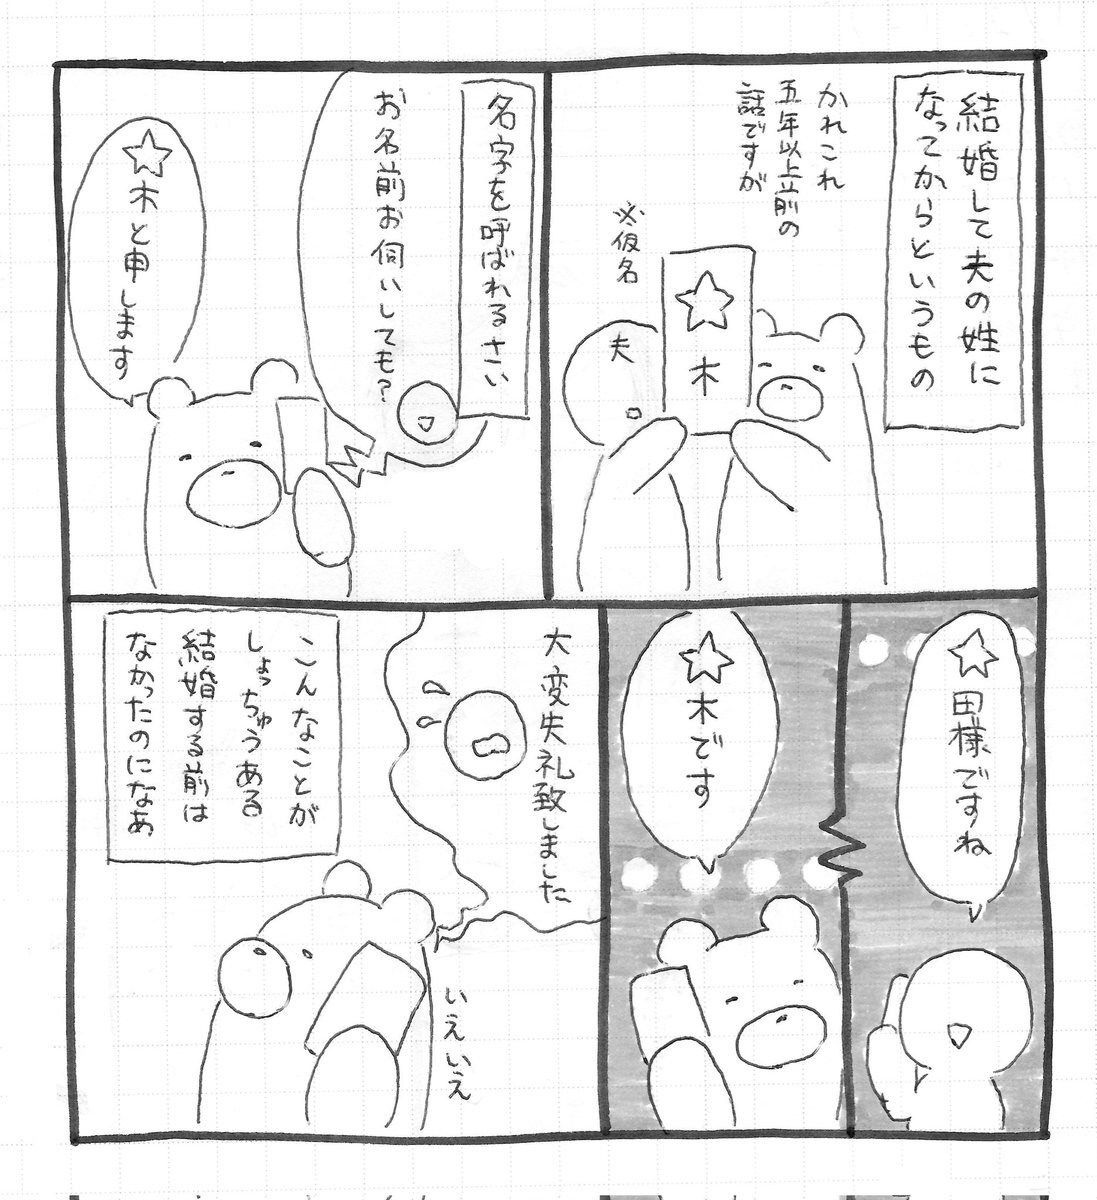 結婚して夫の姓に
なってからというもの
かれこれ
五年以上前の
話ですが
※仮名
☆木
夫
名字を呼ばれるさい
お名前お伺いしても?
☆木と申します
☆田様ですね
☆木です
大変失礼致しました
いえいえ
こんなことが
しょっちゅうある
結婚する前は
なかったのになぁ